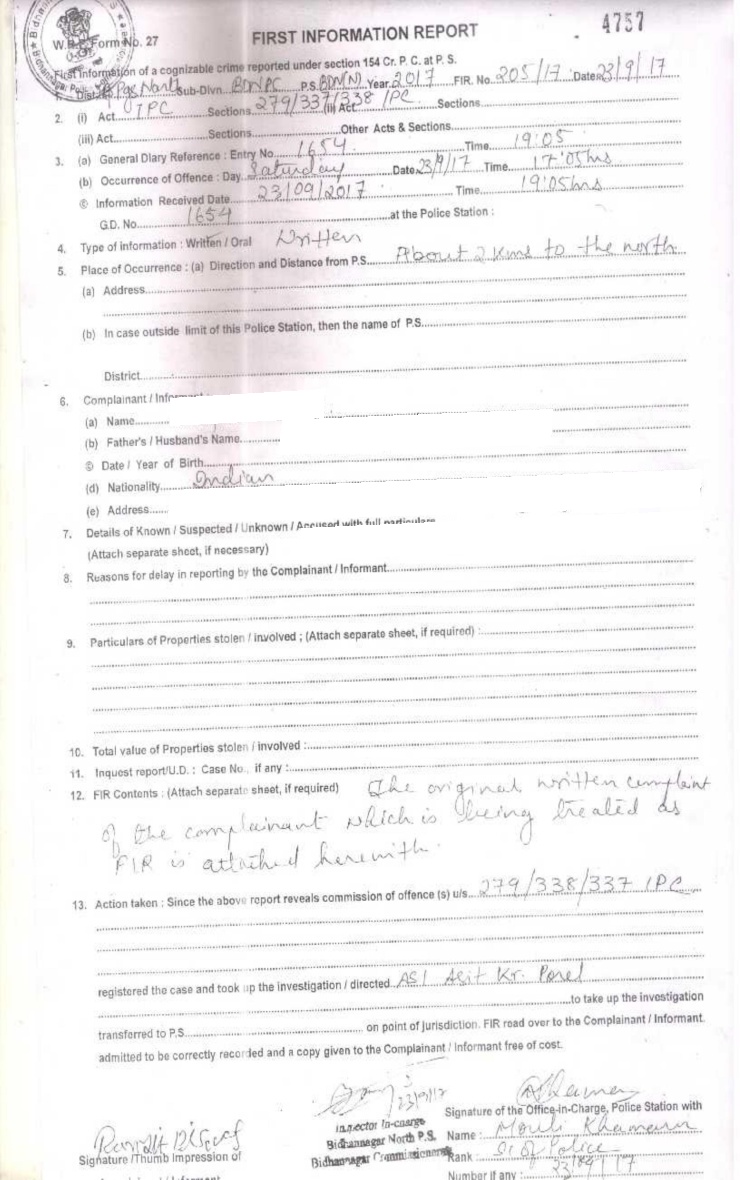 4757
FIRST INFORMATION REPORT
W.B. Form No. 27
First information of a cognizable crime reported under section 154 Cr. P. C. at P. S.
Sub-Divn. P.S. BDN(N) Year 2017 FIR. No. 205/17 Date 23/9/17
2. (i) Act IPC Sections 279/337/338 IPC (ii) Act Sections
(iii) Act Sections Other Acts & Sections
3. (a) General Diary Reference : Entry No 1654 Time 19:05
(b) Occurrence of Offence : Day Saturday Date 23/9/17 Time 17:05hrs
© Information Received Date 23/09/2017 Time 19:05hrs
G.D. No. 1654 at the Police Station :
4. Type of information : Written / Oral Written
5. Place of Occurrence : (a) Direction and Distance from P.S. About 2 Kms to the north
(a) Address
(b) In case outside limit of this Police Station, then the name of P.S.
District
6. Complainant /
(a) Name
(b) Father's / Husband's Name
© Date / Year of Birth
(d) Nationality Indian
(e) Address
7. Details of Known / Suspected / Unknown / Accused with full particulars
(Attach separate sheet, if necessary)
8. Reasons for delay in reporting by the Complainant / Informant
9. Particulars of Properties stolen / involved ; (Attach separate sheet, if required) :
10. Total value of Properties stolen / involved :
11. Inquest report/U.D. : Case No., if any :
12. FIR Contents : (Attach separate sheet, if required) The original written complaint
of the complainant which is being treated as
FIR is attached herewith.
13. Action taken : Since the above report reveals commission of offence (s) u/s. 279/338/337 IPC
registered the case and took up the investigation / directed ASI Asit Kr. Porel
to take up the investigation
transferred to P.S. on point of jurisdiction. FIR read over to the Complainant / Informant.
admitted to be correctly recorded and a copy given to the Complainant / Informant free of cost.
23/9/17
Signature of the Office-in-Charge, Police Station with
Inspector In-charge
Bidhannagar North P.S.
Bidhannagar Commissionerate
Name : Mouli Khamaru
Rank : SI of Police
Signature /Thumb Impression of
Number if any : 23/09/17